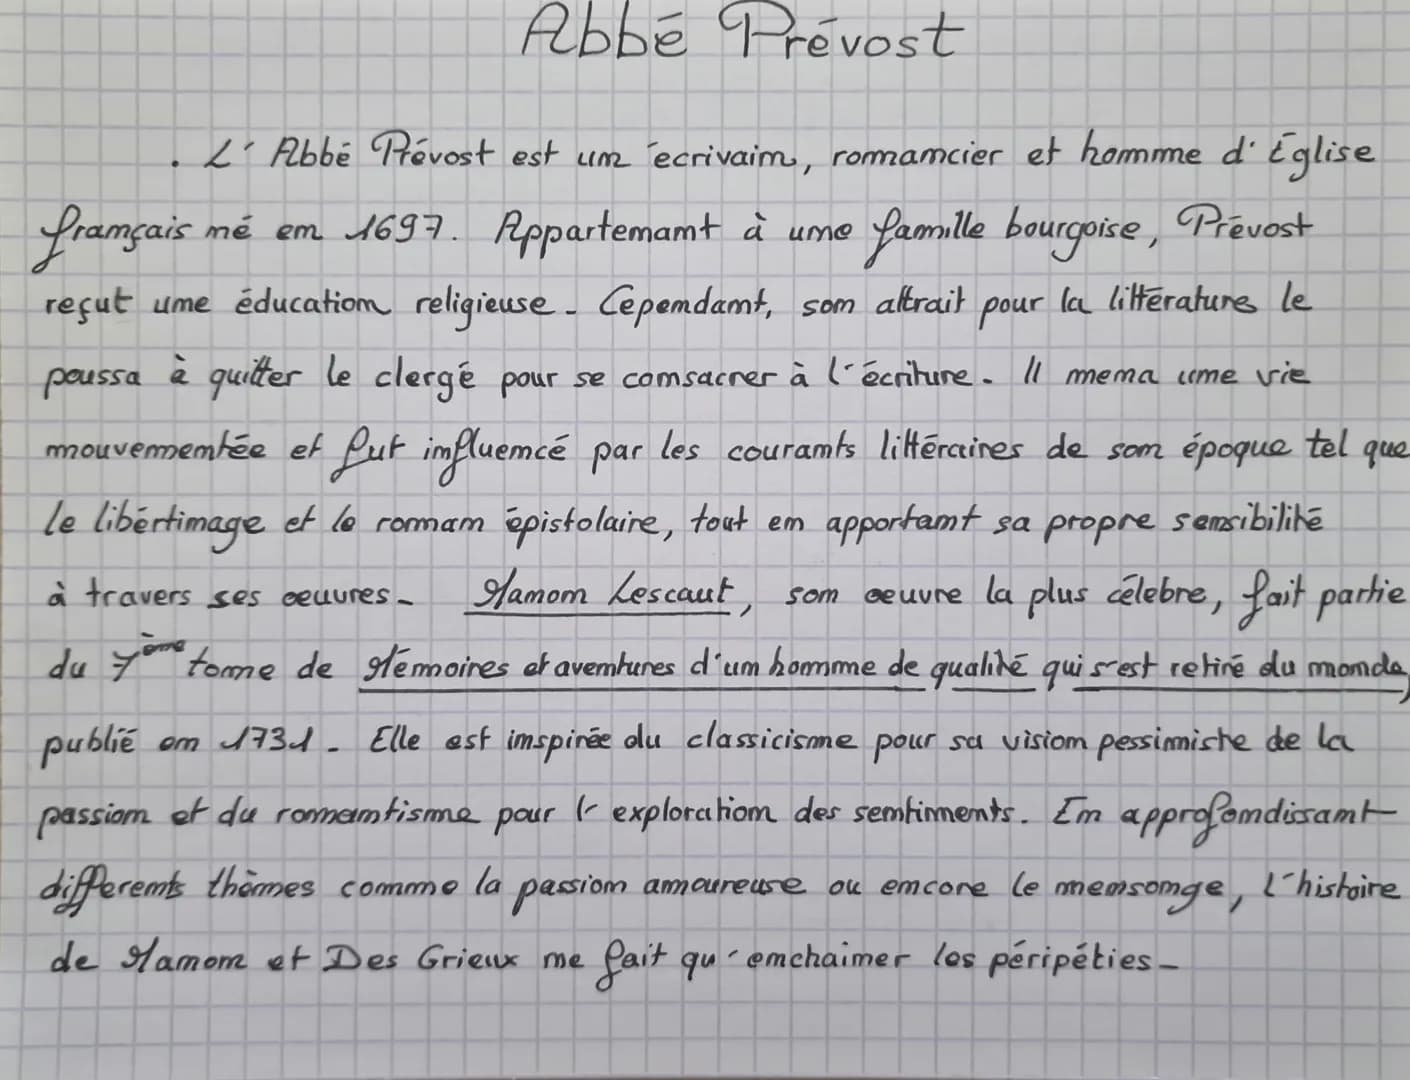 Abbé Prévost
. L'Abbé Prévost est un écrivain, romancier et homme d'Église
français né en 1697. Appartenant à une famille bourgoise, Prévost
reçut une éducation religieuse. Cependant, son attrait pour la littérature le
poussa à quitter le clergé pour se consacrer à l'écriture. Il mena une vie
mouvementée et fut influencé par les courants littéraires de son époque tel que
le libértinage et le roman épistolaire, tout en apportant sa propre sensibilité
à travers ses oeuvres. Manon Lescaut, son oeuvre la plus célebre, fait partie
du 7ème tome de Mémoires et aventures d'un homme de qualité qui s'est retiré du monde,
publié en 1731. Elle est inspirée du classicisme pour sa vision pessimiste de la
passion et du romantisme pour l'exploration des sentiments. En approfondissant
differents thèmes comme la passion amoureuse ou encore le mensonge, l'histoire
de Manon et Des Grieux ne fait qu'enchainer les péripéties.